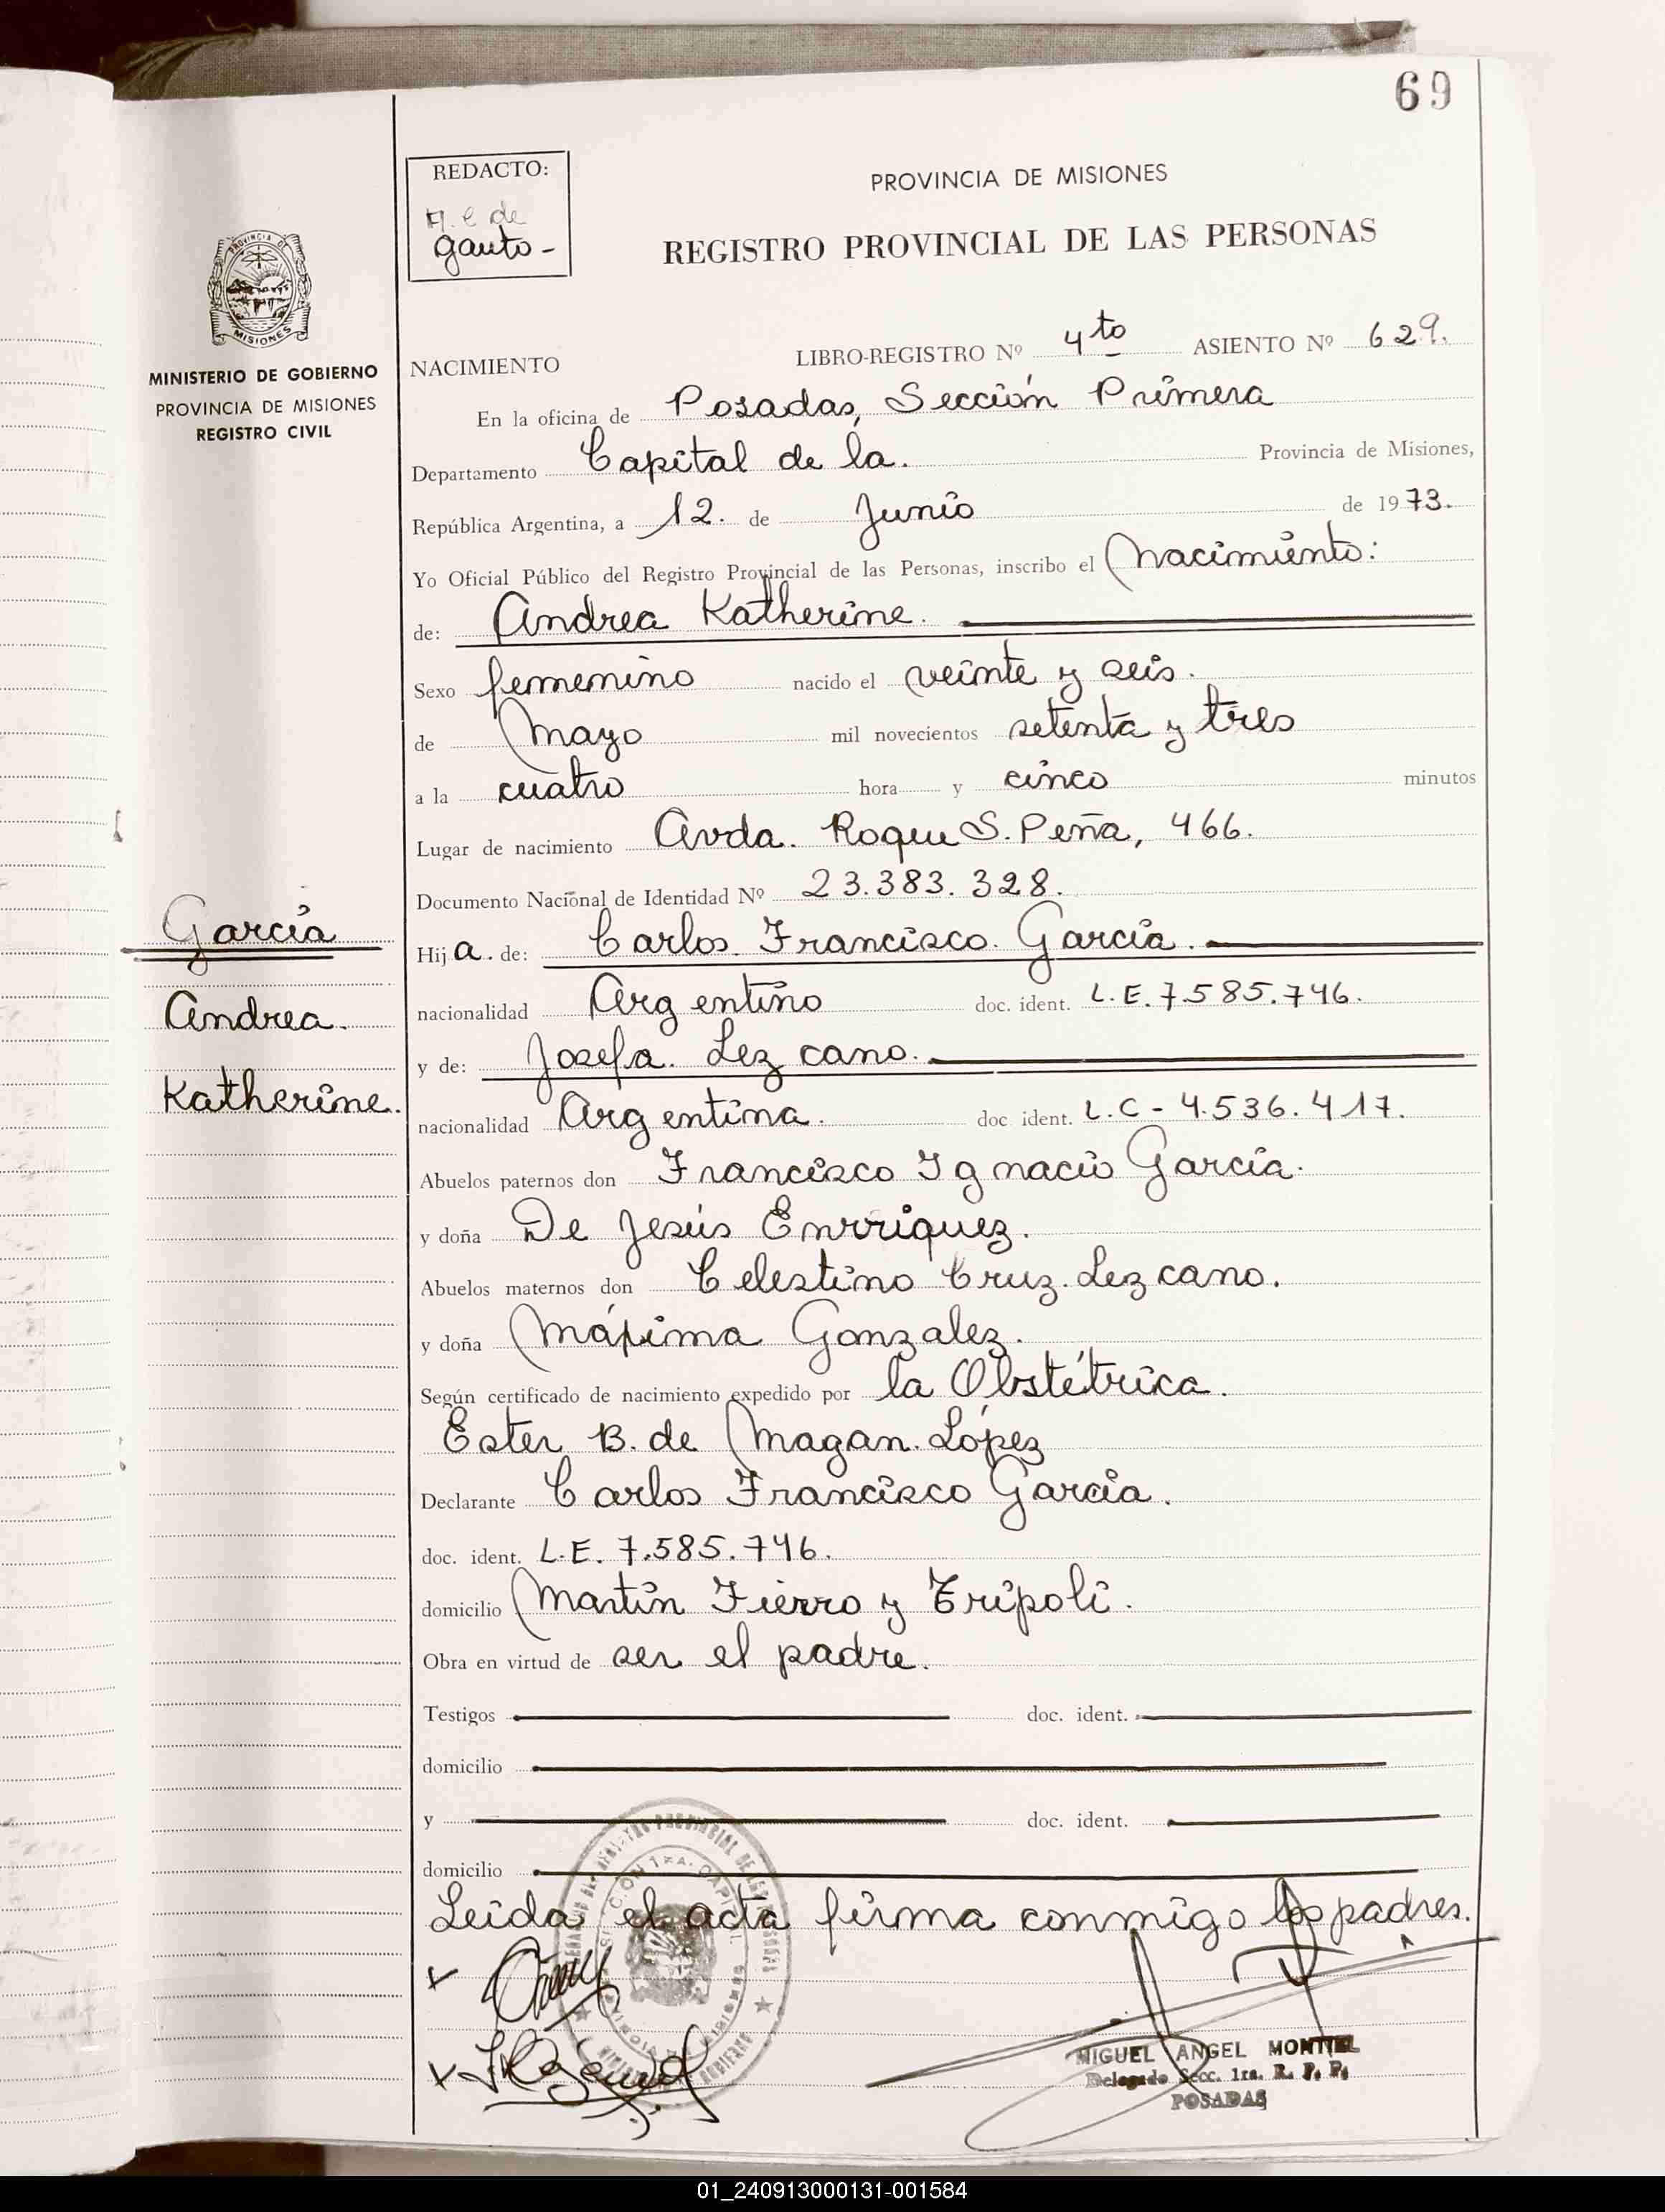 69
REDACTO:
M. e de
Gauto -
PROVINCIA DE MISIONES
REGISTRO PROVINCIAL DE LAS PERSONAS
PROVINCIA DE
MISIONES
MINISTERIO DE GOBIERNO
PROVINCIA DE MISIONES
REGISTRO CIVIL
NACIMIENTO LIBRO-REGISTRO Nº 4to ASIENTO Nº 629.
En la oficina de Posadas, Sección Primera
Departamento Capital de la. Provincia de Misiones,
República Argentina, a 12. de Junio de 1973.
Yo Oficial Público del Registro Provincial de las Personas, inscribo el Nacimiento:
de: Andrea Katherine.
Sexo femenino nacido el veinte y seis.
de Mayo mil novecientos setenta y tres
a la cuatro hora y cinco minutos
Lugar de nacimiento Avda. Roque S. Peña, 466.
Documento Nacional de Identidad Nº 23.383.328.
García
Hija. de: Carlos Francisco. García.
nacionalidad Argentino doc. ident. L.E. 7.585.746.
Andrea.
y de: Josefa. Lezcano.
Katherine.
nacionalidad Argentina. doc. ident. L.C - 4.536.417.
Abuelos paternos don Francisco Ignacio García.
y doña De Jesús Enrriquez.
Abuelos maternos don Celestino Cruz. Lezcano.
y doña Máxima Gonzalez.
Según certificado de nacimiento expedido por la Obstétrica.
Ester B. de Magan. López
Declarante Carlos Francisco García.
doc. ident. L.E. 7.585.746.
domicilio Martín Fierro y Trípoli.
Obra en virtud de ser el padre.
Testigos doc. ident.
domicilio
y doc. ident.
domicilio
Leida el acta firma conmigo los padres.
MIGUEL ANGEL MONTIEL
Delegado Secc. 1ra. R. P. P.
POSADAS
01_240913000131-001584